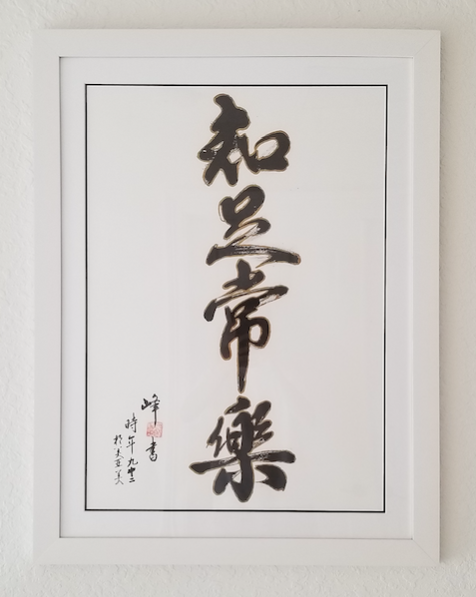 知足常樂
峰書
時年九